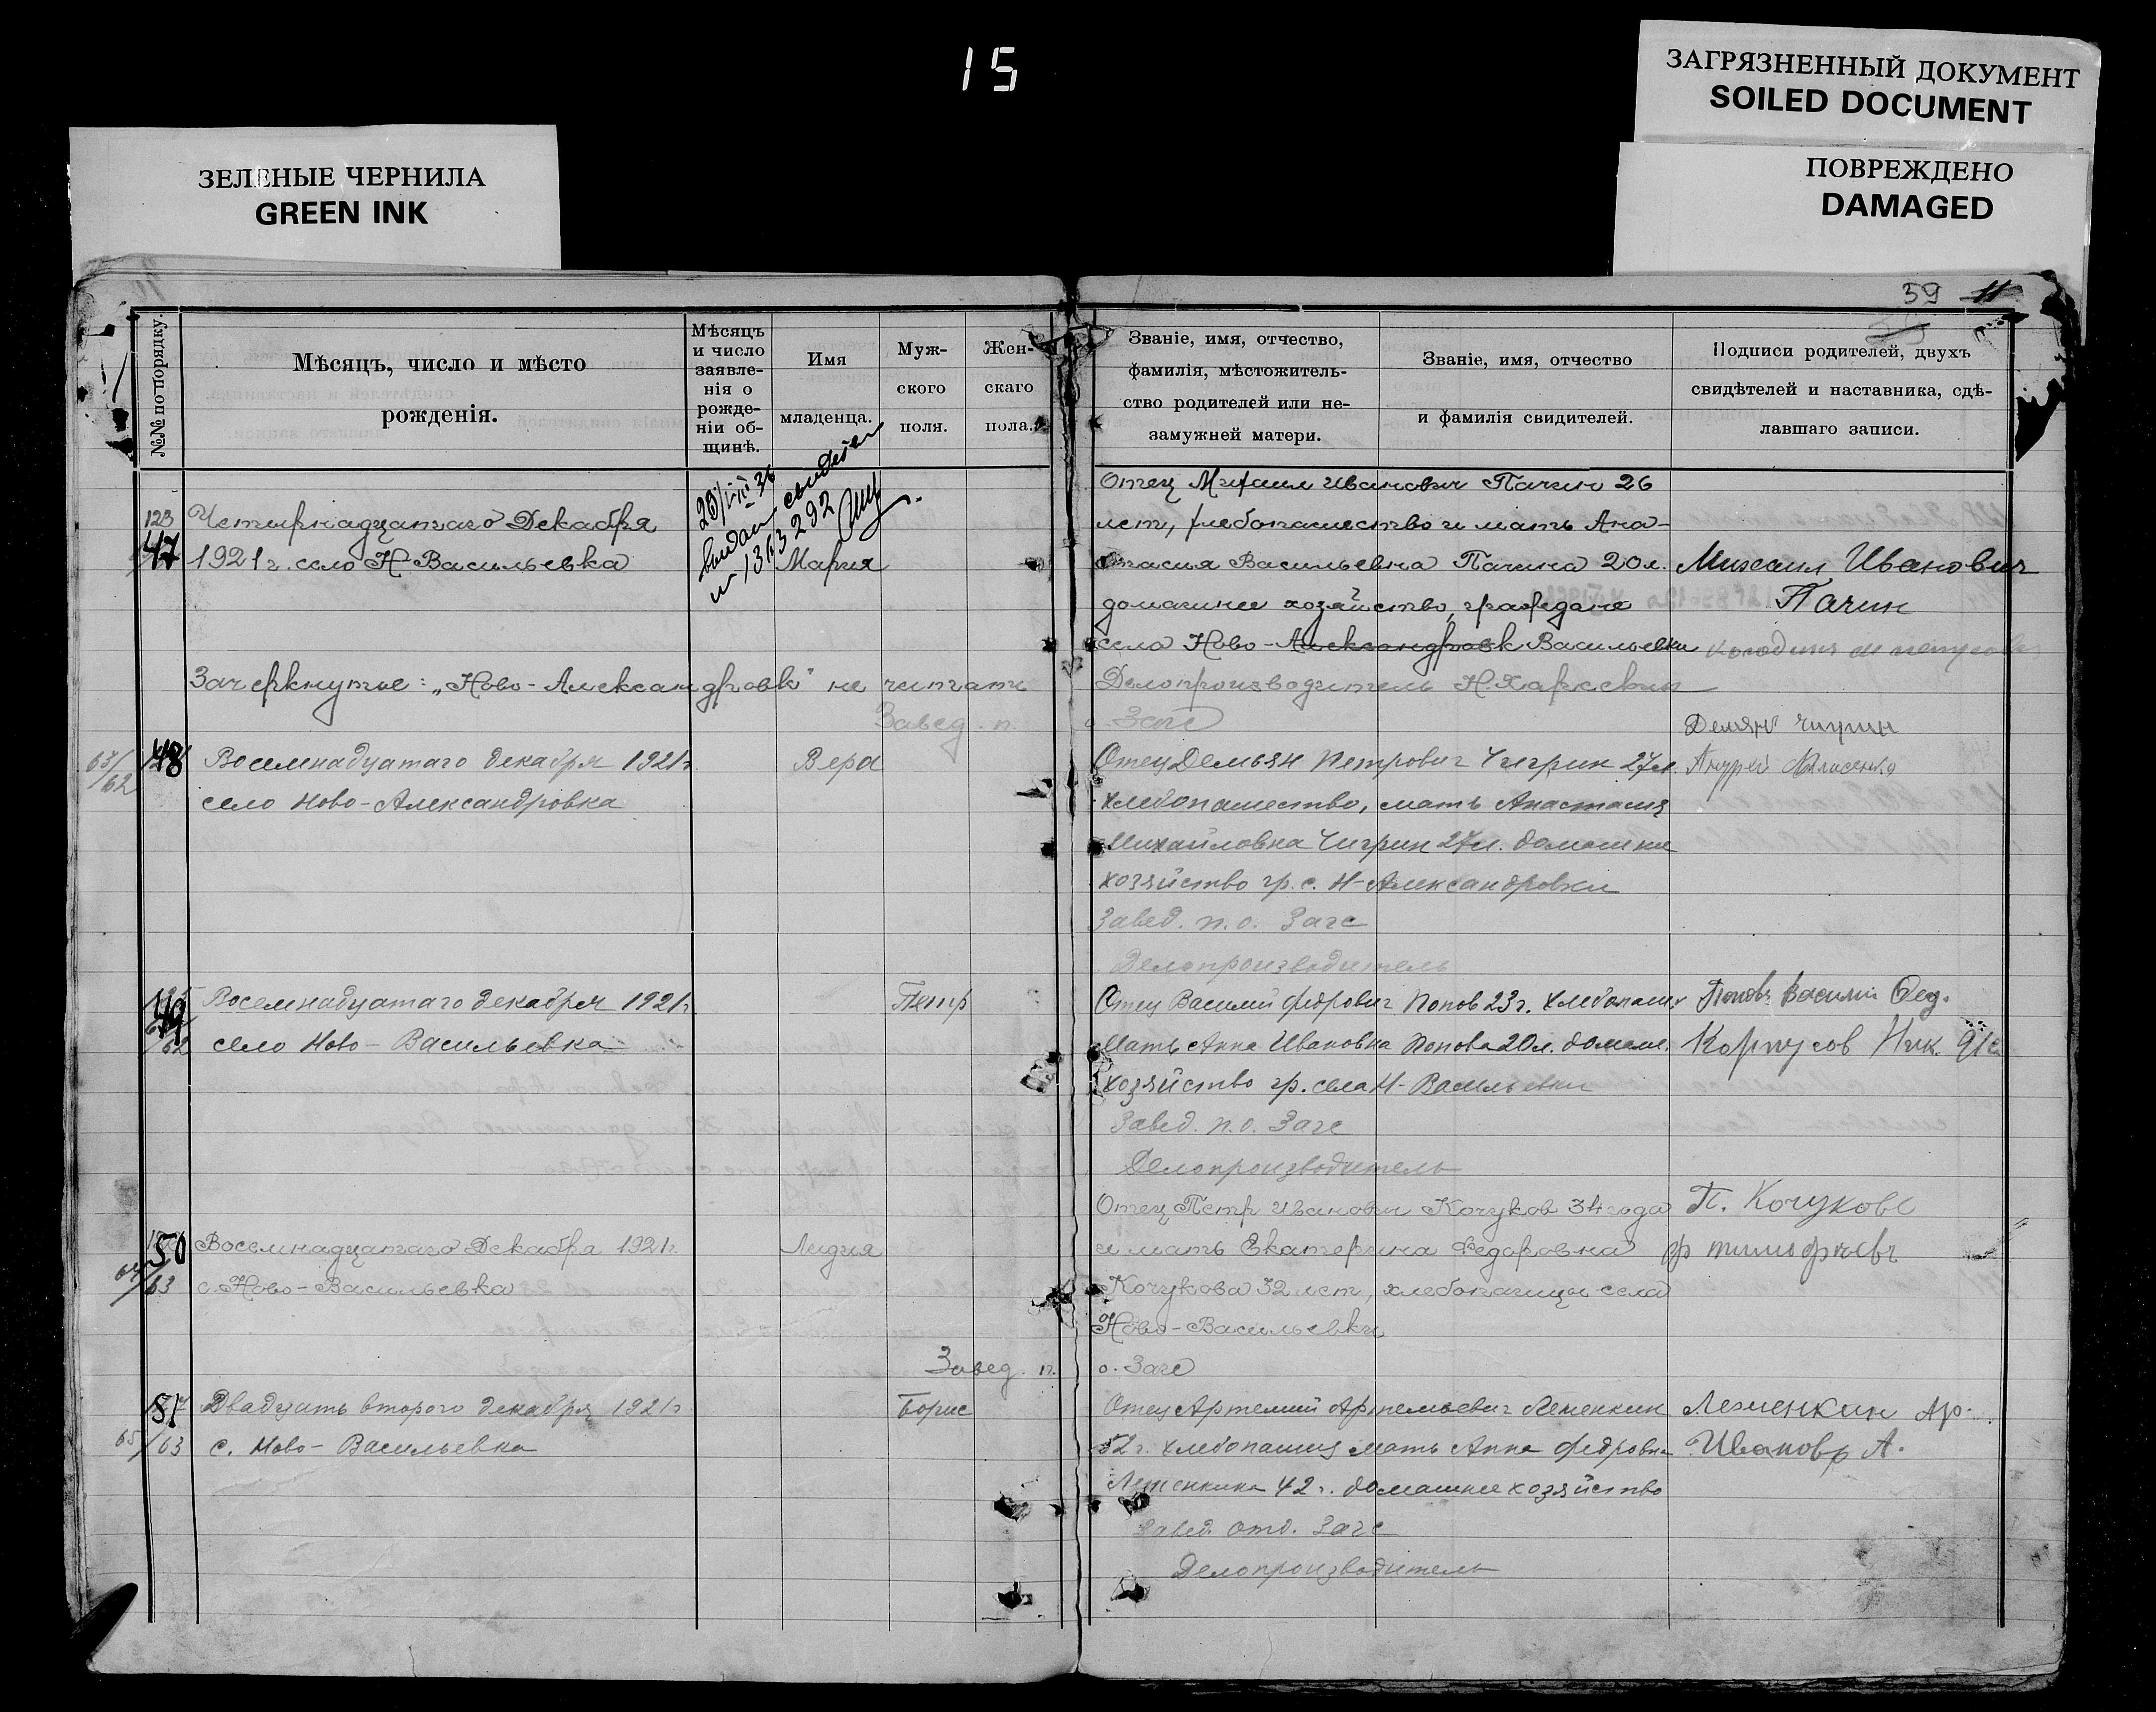 15
ЗАГРЯЗНЕННЫЙ ДОКУМЕНТ
SOILED DOCUMENT
ПОВРЕЖДЕНО
DAMAGED
ЗЕЛЕНЫЕ ЧЕРНИЛА
GREEN INK
59 11
№№ по порядку.
Мѣсяцъ, число и мѣсто
рожденія.
Мѣсяцъ
и число
заявле-
нія о
рожде-
ніи об-
щинѣ.
Имя
младенца.
Муж-
ского
поля.
Жен-
скаго
пола.
Званіе, имя, отчество,
фамилія, мѣстожитель-
ство родителей или не-
замужней матери.
Званіе, имя, отчество
и фамилія свидителей.
Подписи родителей, двухъ
свидѣтелей и наставника, сдѣ-
лавшаго записи.
123
47
Четырнадцатаго Декабря
1921 г. село Н-Васильевка
23/VIII 36
выдан свидетел
№ 1363292
Мария
Отец Михаил Иванович Пачин 26
лет, хлебопашество и мать Ана-
стасия Васильевна Пачина 20 л.
домашнее хозяйство, граждане
села Ново-Александровк Васильевки
Михаил Иванович
Пачин
Зачеркнутое: „Ново-Александровк" не читать
Делопроизводитель Н. Харкевич
Завед. п. о. Загс
48
63/62
Восемнадцатаго декабря 1921 г
село Ново-Александровка
Вера
Отец Демьян Петрович Чигрин 27 л.
хлебопашество, мать Анастасия
Михайловна Чигрин 27 л. домашнее
хозяйство гр. с. Н-Александровки
Завед. п. о. Загс
Делопроизводитель
Демян Чигрин
Андрей
49
/62
Восемнадцатаго декабря 1921 г
село Ново-Васильевка
Петр
Отец Василий Федрович Попов 23 г. хлебопаш
Мать Анна Ивановна Попова 20 л. домаш.
хозяйство гр. села Н-Васильевки
Завед. п. о. Загс
Делопроизводитель
Поповъ Василий Фед.
Корпусов Ник.
50
64/63
Восемнадцатаго Декабря 1921 г.
с. Ново-Васильевка
Лидия
Отец Петр Иванович Кочуков 34 года
и мать Екатерина Федоровна
Кочукова 32 лет, хлебопашцы села
Ново-Васильевки
Завед. п. о. Загс
П. Кочуковъ
Ф тимофѣевъ
51
65/63
Двадцать второго декабря 1921 г
с. Ново-Васильевка
Борис
Отец Артемий Артемьевич Леменкин
52 г. хлебопашец мать Анна Федровна
Леменкина 42 г. домашнее хозяйство
Завед. отд. Загс
Делопроизводитель
Леменкин Ар.
Ивановъ А.